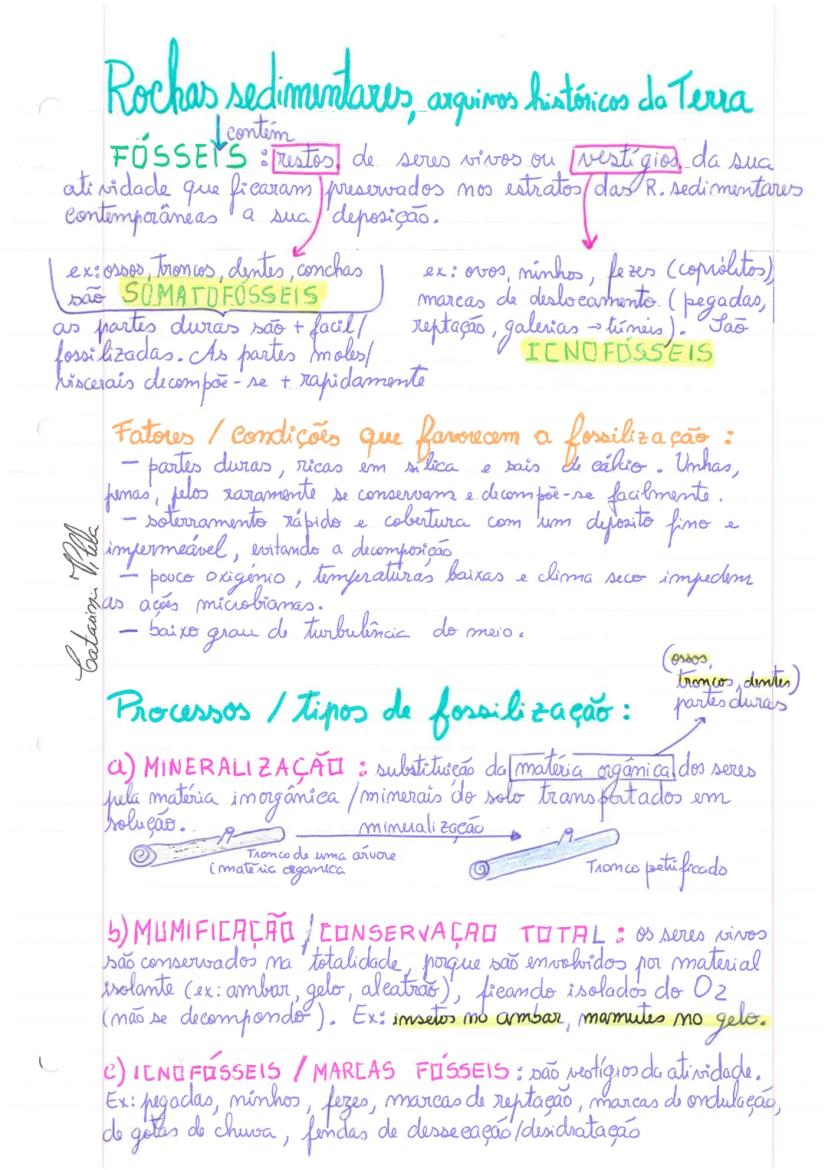 Rochas sedimentares, arquivos históricos da Terra
contém
FÓSSEIS : restos de seres vivos ou vestígios da sua
atividade que ficaram preservados nos estratos das R. sedimentares
contemporâneas a sua deposição.
ex: ossos, troncos, dentes, conchas
são SOMATOFÓSSEIS
as partes duras são + facil/
fossilizadas. As partes moles/
viscerais decompõe-se + rapidamente
ex: ovos, ninhos, fezes (coprólitos),
marcas de deslocamento (pegadas,
reptação, galerias → túneis). São
ICNOFÓSSEIS
Fatores / condições que favorecem a fossilização :
— partes duras, ricas em sílica e sais de cálcio. Unhas,
penas, pelos raramente se conservam e decompõe-se facilmente.
— soterramento rápido e cobertura com um deposito fino e
impermeável, evitando a decomposição
— pouco oxigénio, temperaturas baixas e clima seco impedem
as ações microbianas.
— baixo grau de turbulência do meio.
Catarina Vilela
Processos / tipos de fossilização :
(ossos,
troncos, dentes)
partes duras
a) MINERALIZAÇÃO : substituição da matéria orgânica dos seres
pela matéria inorgânica / minerais do solo transportados em
solução.
mineralização
Tronco de uma árvore
(matéria organica
Tronco petrificado
b) MUMIFICAÇÃO / CONSERVAÇAO TOTAL : os seres vivos
são conservados na totalidade, porque são envolvidos por material
isolante (ex: ambar, gelo, alcatrão), ficando isolados do O2
(não se decompondo). Ex: insetos no ambar, mamutes no gelo.
c) ICNOFÓSSEIS / MARCAS FÓSSEIS : são vestígios da atividade.
Ex: pegadas, ninhos, fezes, marcas de reptação, marcas de ondulação,
de gotas de chuva, fendas de dessecação/desidratação